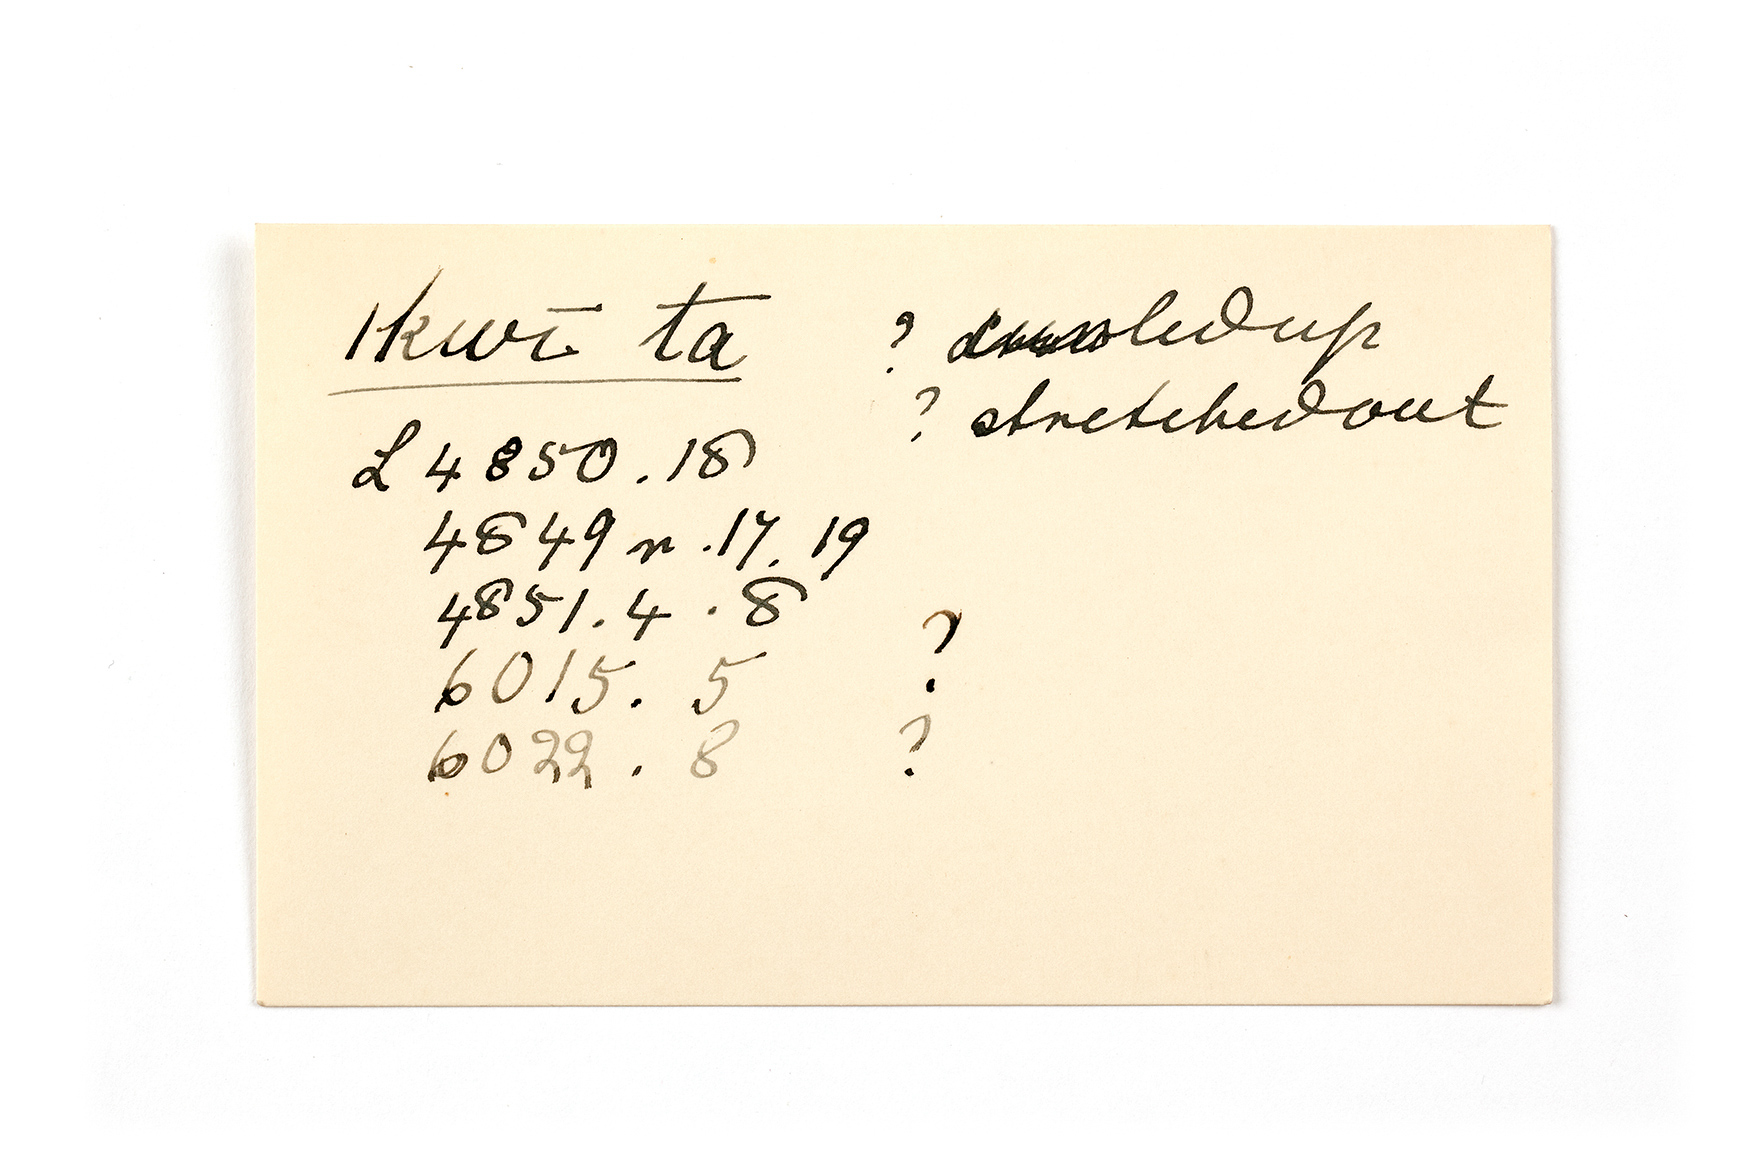 |kwī ta ? up
? stretched out
L 4850.18
4849 r .17. 19
4851.4 . 8
6015. 5 ?
6022. 8 ?